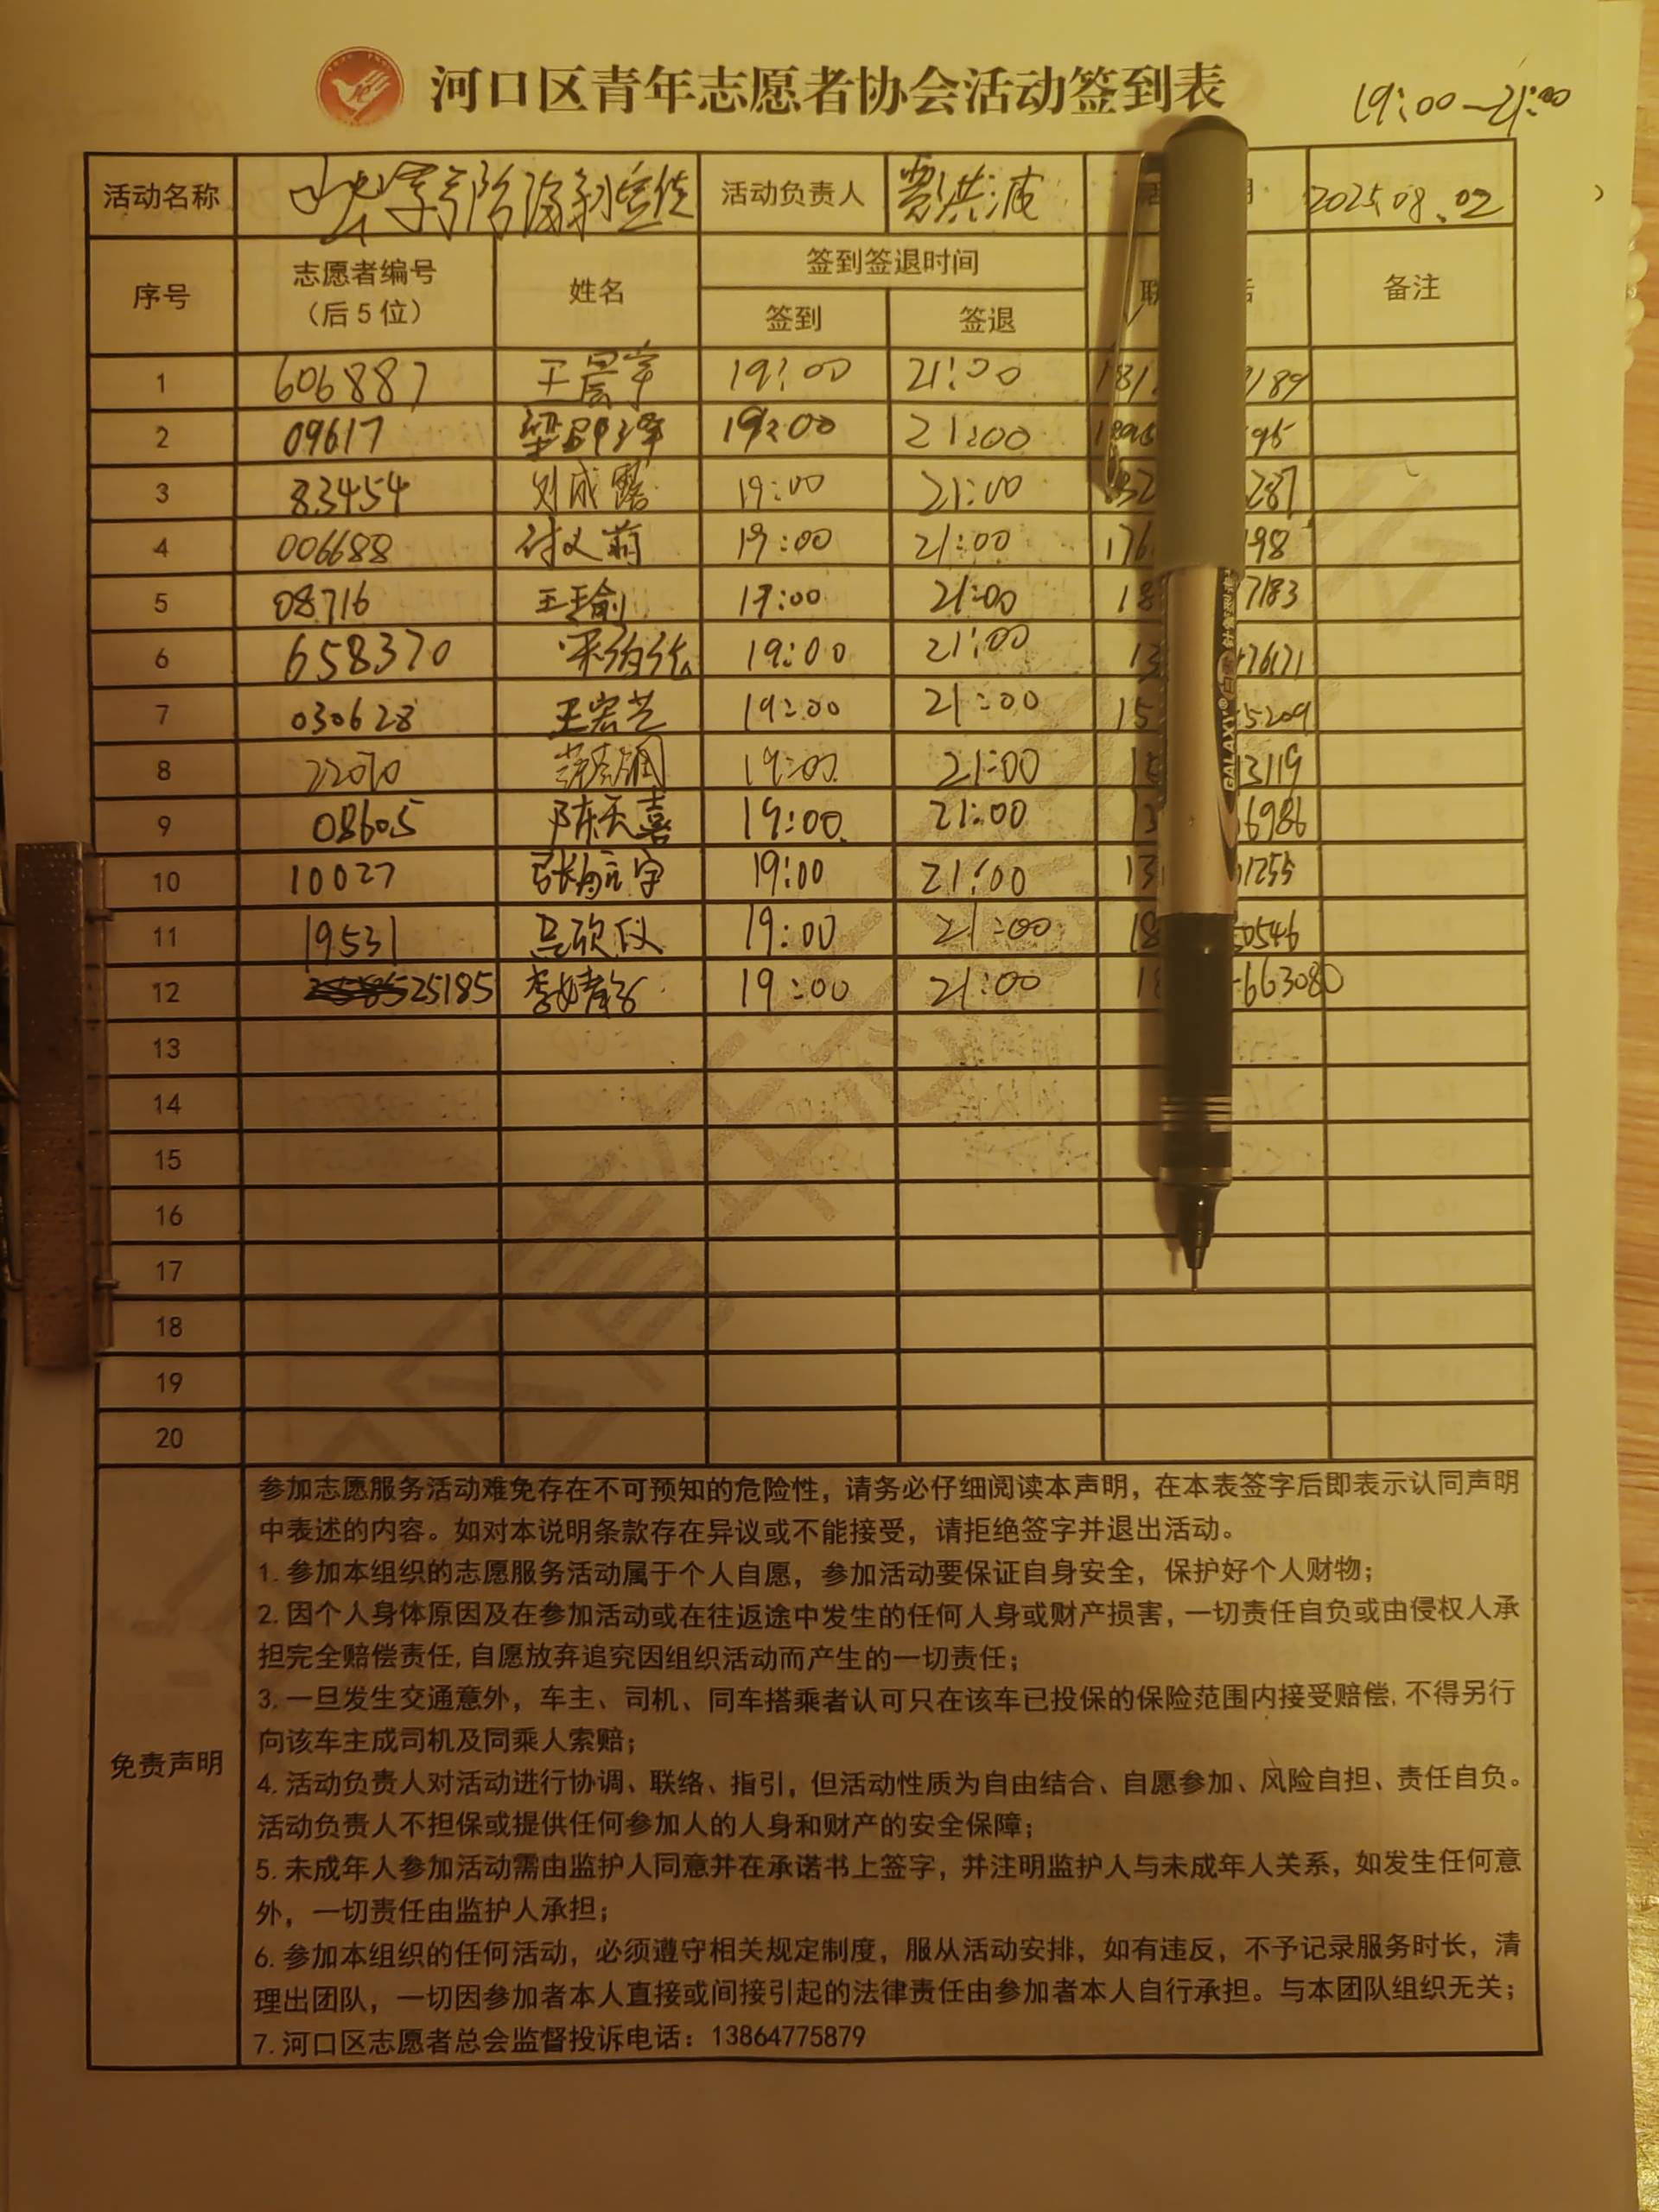 河口区青年志愿者协会活动签到表
19:00-21:00
活动名称 宣传 活动负责人 贾洪波 2025.08.02
序号 志愿者编号（后5位） 姓名 签到签退时间 备注
签到 签退
1 606887 王晨宇 19:00 21:00 181 9189
2 09617 梁 泽 19:00 21:00 1895 95
3 83454 刘成露 19:00 21:00 287
4 006688 付文莉 19:00 21:00 176 198
5 08716 王瑜 19:00 21:00 18 7183
6 658370 19:00 21:00 13 76171
7 030628 王宏艺 19:00 21:00 15 5209
8 22070 19:00 21:00 13119
9 08605 陈天喜 19:00 21:00 13 6986
10 10027 张航宇 19:00 21:00 13 1255
11 19531 吕欣仪 19:00 21:00 18 50546
12 25185 李婧 19:00 21:00 18 663080
13
14
15
16
17
18
19
20
免责声明
参加志愿服务活动难免存在不可预知的危险性，请务必仔细阅读本声明，在本表签字后即表示认同声明
中表述的内容。如对本说明条款存在异议或不能接受，请拒绝签字并退出活动。
1. 参加本组织的志愿服务活动属于个人自愿，参加活动要保证自身安全，保护好个人财物；
2. 因个人身体原因及在参加活动或在往返途中发生的任何人身或财产损害，一切责任自负或由侵权人承
担完全赔偿责任，自愿放弃追究因组织活动而产生的一切责任；
3. 一旦发生交通意外，车主、司机、同车搭乘者认可只在该车已投保的保险范围内接受赔偿，不得另行
向该车主成司机及同乘人索赔；
4. 活动负责人对活动进行协调、联络、指引，但活动性质为自由结合、自愿参加、风险自担、责任自负。
活动负责人不担保或提供任何参加人的人身和财产的安全保障；
5. 未成年人参加活动需由监护人同意并在承诺书上签字，并注明监护人与未成年人关系，如发生任何意
外，一切责任由监护人承担；
6. 参加本组织的任何活动，必须遵守相关规定制度，服从活动安排，如有违反，不予记录服务时长，清
理出团队，一切因参加者本人直接或间接引起的法律责任由参加者本人自行承担。与本团队组织无关；
7. 河口区志愿者总会监督投诉电话：13864775879
GALAXY®